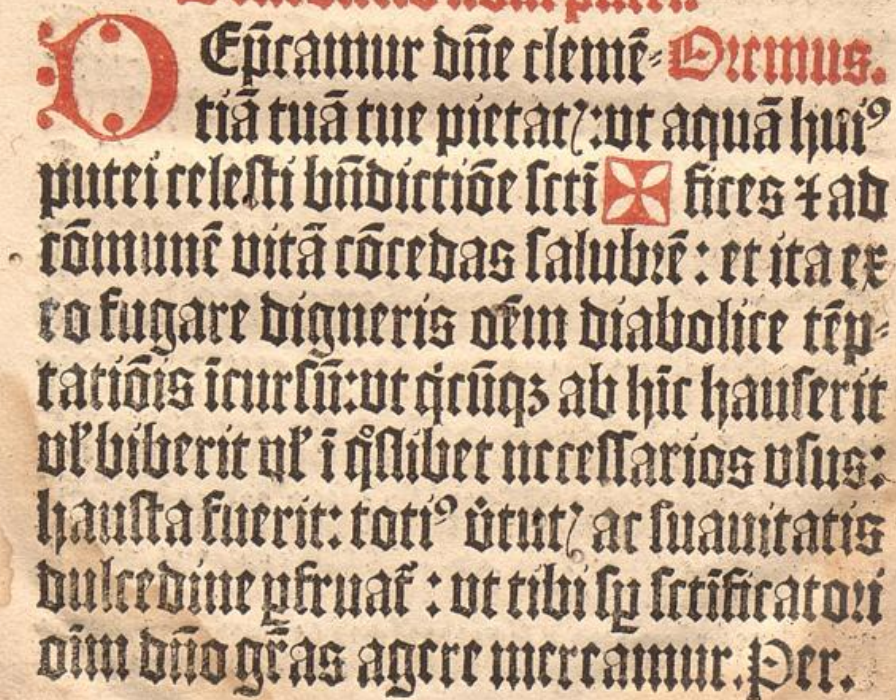 DEp̄camur dn̄e clemē⸗ Oremus.
tiā tuā tue pietatꝭ: ut aquā huiꝰ
putei celesti bn̄dictiōe scti ✠ fices ⁊ ad
cōmunē vitā cōcedas salubrē: et ita ex
eo fugare digneris oēm diabolice tēp⸗
tatiōis īcursū: ut q̇cūqꝫ ab hīc hauserit
vl̓ biberit vl̓ ī q̊slibet necessarios vsus:
hausta fuerit: totiꝰ v̓tutꝭ ac suauitatis
dulcedine ꝑfruat᷑: ut tibi sꝑ sctīficatori
oīm dn̄o gr̄as agere mereamur. Per.